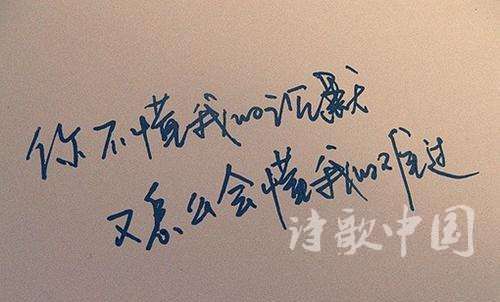 你不懂我的沉默
又怎么会懂我的难过
诗歌中国